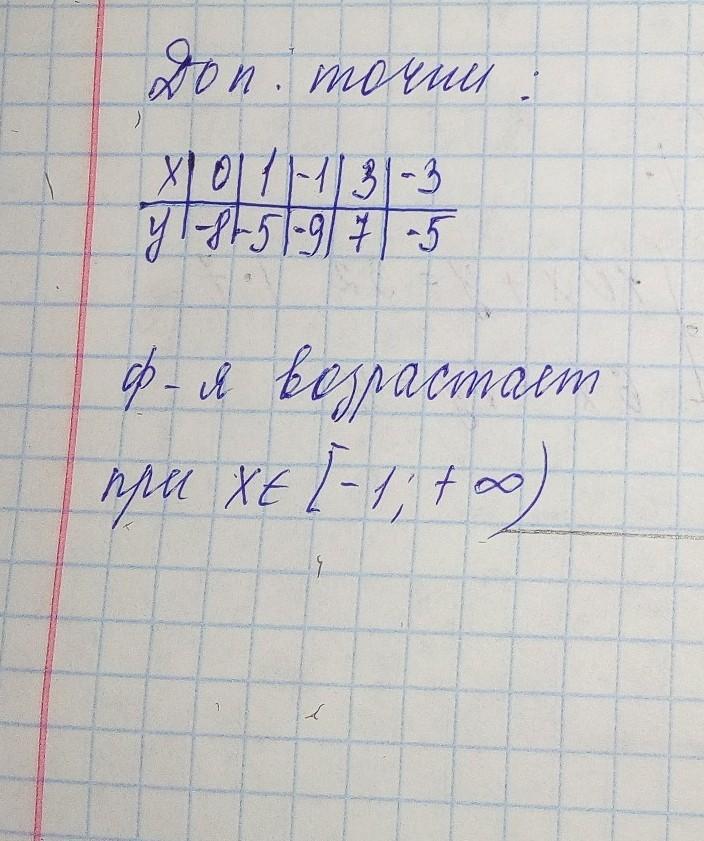 Доп. точки:
x | 0 | 1 | -1 | 3 | -3
y | -8 | -5 | -9 | 7 | -5
ф-я возрастает
при x ∈ [-1; +∞)